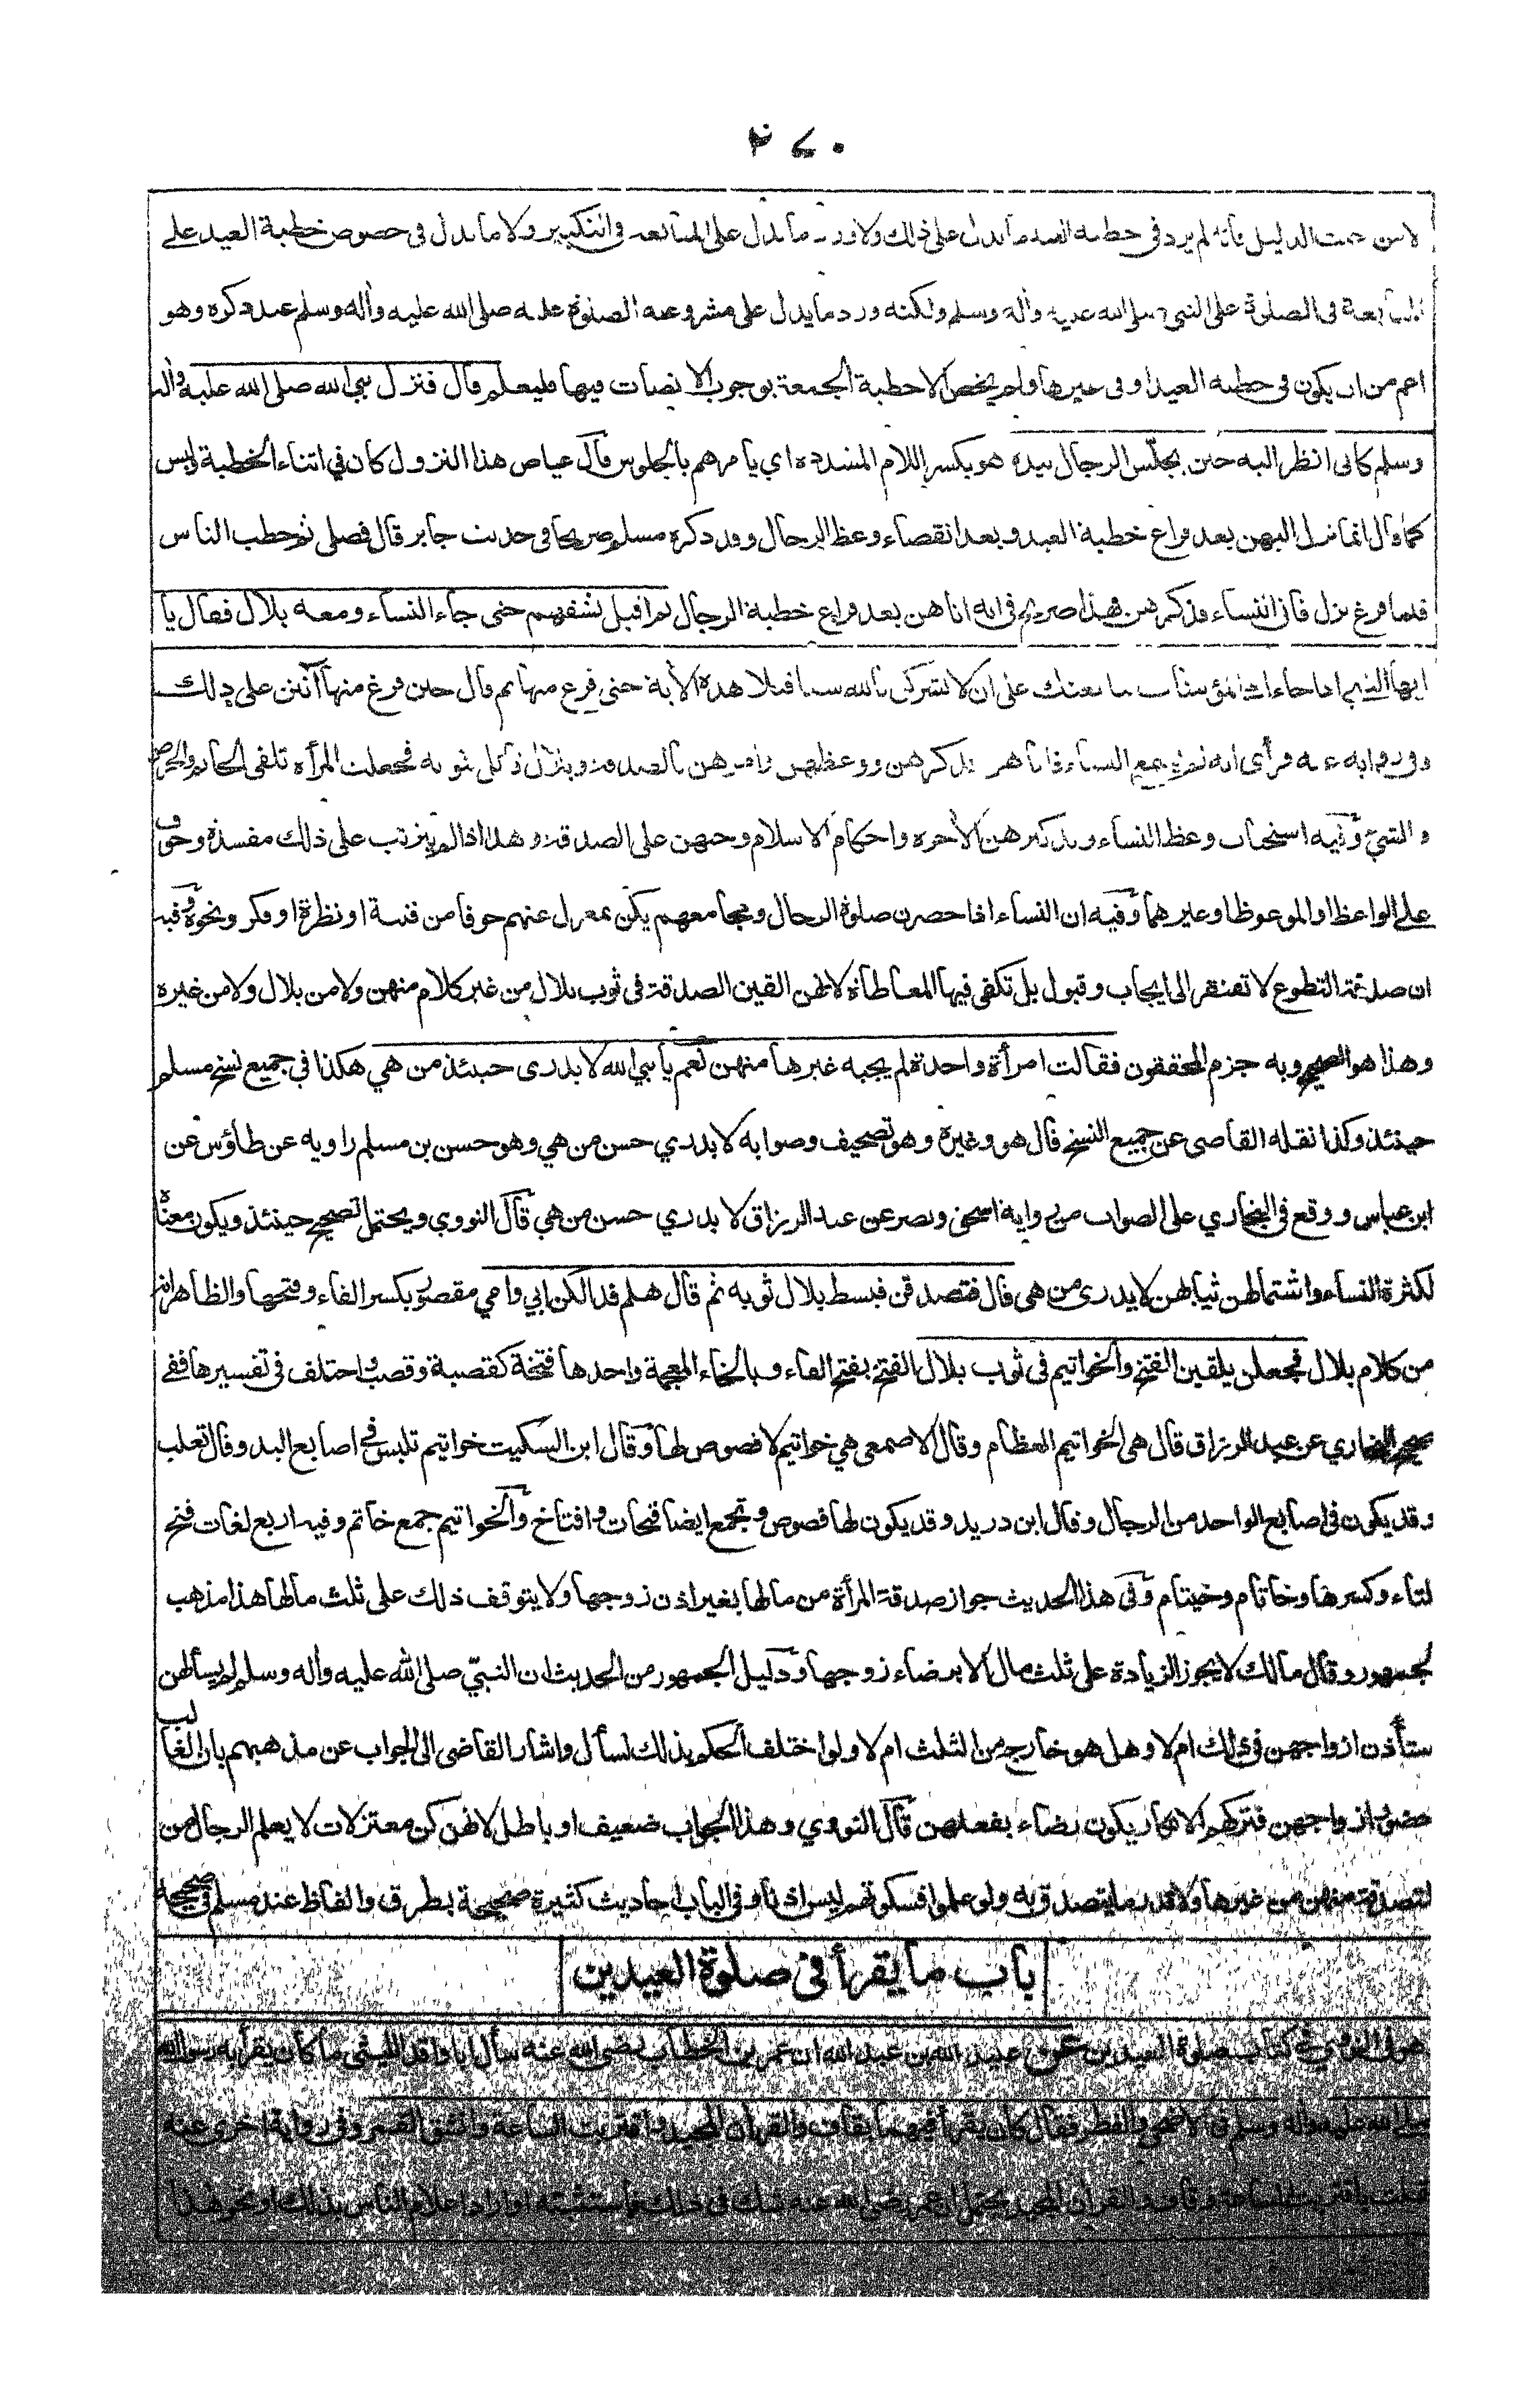 ٢٧٠
لا من حيث الدليل فانه لم يرد في خطبة العيد ما يدل على ذلك ولا ورد ما يدل على المتابعة في التكبير ولا ما يدل في خصوص خطبة العيد على
المتابعة في الصلوة على النبي صلى الله عليه واٰله وسلم ولكنه ورد ما يدل على مشروعية الصلوة عليه صلى الله عليه واٰله وسلم عند ذكره وهو
اعم من ان يكون في خطبة العيد او في غيرها ولم يخص الا خطبة الجمعة بوجوب الانصات فيها فليعلم قال فنزل نبي الله صلى الله عليه واٰله
وسلم كاني انظر اليه حين يجلّس الرجال بيده هو بكسر اللام المشددة اي يامرهم بالجلوس قال عياض هذا النزول كان في اثناء الخطبة وليس
كما قال انما نزل اليهن بعد فراغ خطبة العيد وبعد انقضاء وعظ الرجال وقد ذكره مسلم صريحا في حديث جابر قال فصلى ثم خطب الناس
فلما فرغ نزل فاتى النساء فذكرهن فهذا صريح في انه اتاهن بعد فراغ خطبة الرجال ثم اقبل يشقهم حتى جاء النساء ومعه بلال فقال يا
ايها النبي اذا جاءك المؤمنات يبايعنك على ان لا يشركن بالله شيئا فتلا هذه الأية حتى فرغ منها ثم قال حين فرغ منها اٰنتن على ذلك
وفي رواية عنه فرأى انه لم يسمع النساء فاتاهن فذكرهن ووعظهن وامرهن بالصدقة وبلال قائل بثوبه فجعلت المرأة تلقي الخاتم والخرص
والشئ وفيه استحباب وعظ النساء وتذكيرهن الأخرة واحكام الاسلام وحثهن على الصدقة وهذا اذا لم يترتب على ذلك مفسدة وخوف
على الواعظ او الموعوظ او غيرهما وفيه ان النساء اذا حضرن صلوة الرجال ومجامعهم يكن بمعزل عنهم خوفا من فتنة او نظرة او فكر ونحوه وفيه
ان صدقة التطوع لا تفتقر الى ايجاب وقبول بل تكفي فيها المعاطاة لانهن القين الصدقة في ثوب بلال من غير كلام منهن ولا من بلال ولا من غيره
وهذا هو الصحيح وبه جزم المحققون فقالت امرأة واحدة لم يجبه غيرها منهن نعم يا نبي الله لا يدرى حينئذ من هي هكذا في جميع نسخ مسلم
حينئذ وكذا نقله القاضى عن جميع النسخ قال هو وغيره وهو تصحيف وصوابه لا يدري حسن من هي وهو حسن بن مسلم راويه عن طاؤس عن
ابن عباس ووقع في البخاري على الصواب من رواية اسحق ونصر عن عبد الرزاق لا يدري حسن من هي قال النووي ويحتمل تصحيح حينئذ ويكون معناه
لكثرة النساء واشتمالهن ثيابهن لا يدرى من هي قال فتصدقن فبسط بلال ثوبه ثم قال هلم فدا لكن ابي وامي مقصور بكسر الفاء وفتحها والظاهر انه
من كلام بلال فجعلن يلقين الفتخ والخواتيم في ثوب بلال الفتخ بفتح الفاء وبالخاء المعجمة واحدها فتخة كقصبة وقصب واختلف في تفسيرها ففي
صحيح البخاري عن عبد الرزاق قال هي الخواتيم العظام وقال الاصمعي هي خواتيم لا فصوص لها وقال ابن السكيت خواتيم تلبس في اصابع اليد وقال ثعلب
وقد يكون في اصابع الواحد من الرجال وقال ابن دريد وقد يكون لها فصوص وتجمع ايضا فتخات وافتاخ والخواتيم جمع خاتم وفيه اربع لغات فتح
لتاء وكسرها وخاتام وخيتام وفي هذا الحديث جواز صدقة المرأة من مالها بغير اذن زوجها ولا يتوقف ذلك على ثلث مالها هذا مذهب
لجمهور وقال مالك لا يجوز الزيادة على ثلث مال الا برضاء زوجها ودليل الجمهور من الحديث ان النبيّ صلى الله عليه واٰله وسلم لم يسألهن
ستأذن ازواجهن في ذلك ام لا وهل هو خارج من الثلث ام لا ولو اختلف الحكم بذلك لسأل واشار القاضى الى الجواب عن مذهبهم بان الغالب
حضور ازواجهن فتركهم الانكار يكون رضاء بفعلهن قال النووي وهذا الجواب ضعيف او باطل لانهن كن معتزلات لا يعلم الرجال من
لتصدقة منهن من غيرها ولا قدر ما يتصدق به ولو علموا فسكوتهم ليس اذنا وفي الباب احاديث كثيرة صحيحة بطرق والفاظ عند مسلم في صحيحه
باب ما يقرأ في صلوة العيدين
هو في النووي في كتاب صلوة العيدين عن عبيد الله بن عبد الله ان عمر بن الخطاب رضى الله عنه سأل ابا واقد الليثي ما كان يقرأ به رسول الله
صلى الله عليه واٰله وسلم في الاضحى والفطر فقال كان يقرأ فيهما بقاف والقراٰن المجيد واقتربت الساعة وانشق القمر وفي رواية اخرى عنه
فقلت باقتربت الساعة وقاف والقراٰن المجيد يحتمل ان عمر رضى الله عنه شك في ذلك فاستثبته او اراد اعلام الناس بذلك او نحو هذا